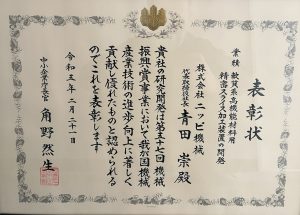 表彰状
業績 軟質系高機能材料用
精密スライス加工装置の開発
株式会社 ニッピ機械
代表取締役社長 青田 崇殿
貴社の研究開発は第五十七回 機械
振興賞事業において我が国機械
産業技術の進歩向上に著しく
貢献し優れたものと認められる
のでこれを表彰します
令和五年二月二十一日
中小企業庁長官
角野然生